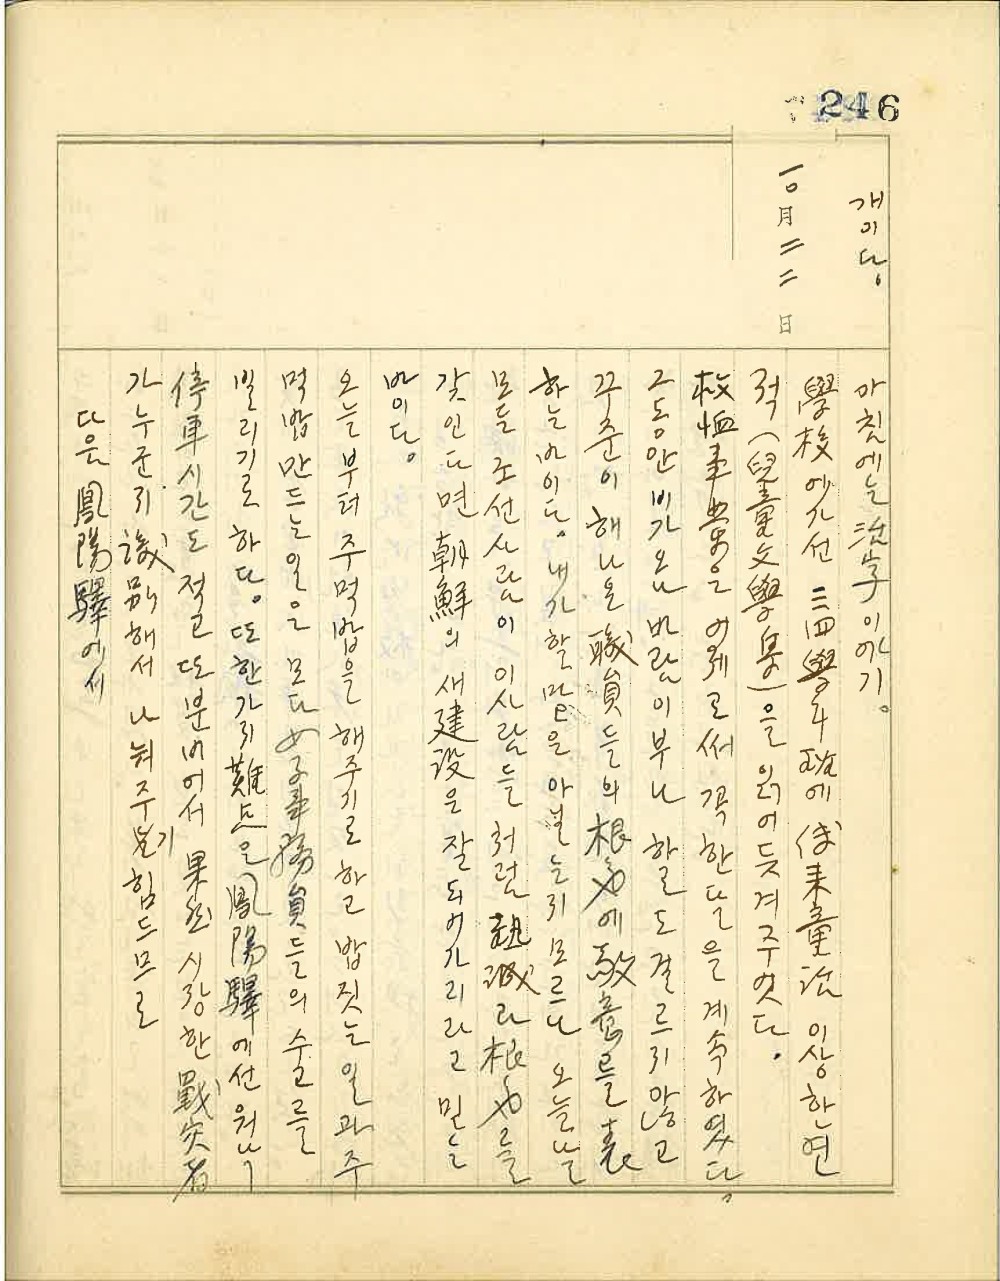 246
개이당。
一〇月二二日
아침에는 治字이야기。
學校에가선 三四學年 에 傳来童話 이상한연
적(兒童文學集)을 읽어듯겨주엇다.
救恤事業은 이제로써 꼭한달을계속하였다。
그동안 비가오나 바람이부나 하로도걸르지않고
꾸준이해나온 職員들의 根氣에 敬意를 表
하는바이다。내가할말은아닐는지모르나 오늘날
모든조선사람이 이사람들처럼 熱誠과根氣를
갖인다면 朝鮮의 새建設은 잘되어가리라고 믿는
바이다。
오늘부터 주먹밥을해주기로하고 밥짓는일과 주
먹밥만드는일은 모다 女子事務員들의 손을
빌리기로하다。또한가지難点은 鳳陽驛에선 워낙
停車시간도적고 또분벼어서 果然시장한戰災者
가누군지 識別해서 나눠주기 힘드므로
다음 鳳陽驛에서